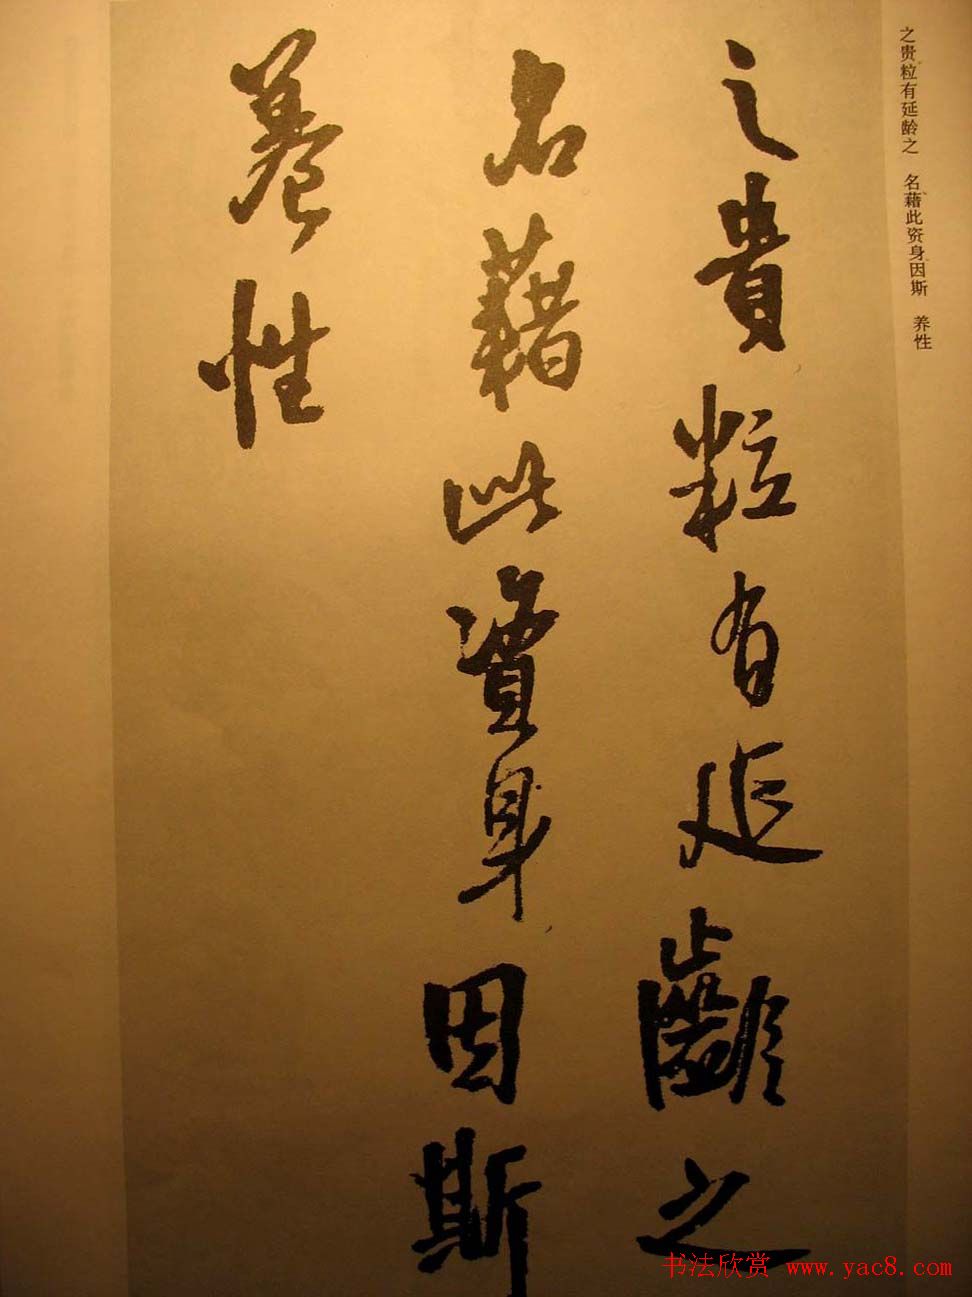 之贵粒有延龄之 名藉此资身因斯 养性
之貴粒有延齡之
名藉此資身因斯
養性
书法欣赏 www.yac8.com